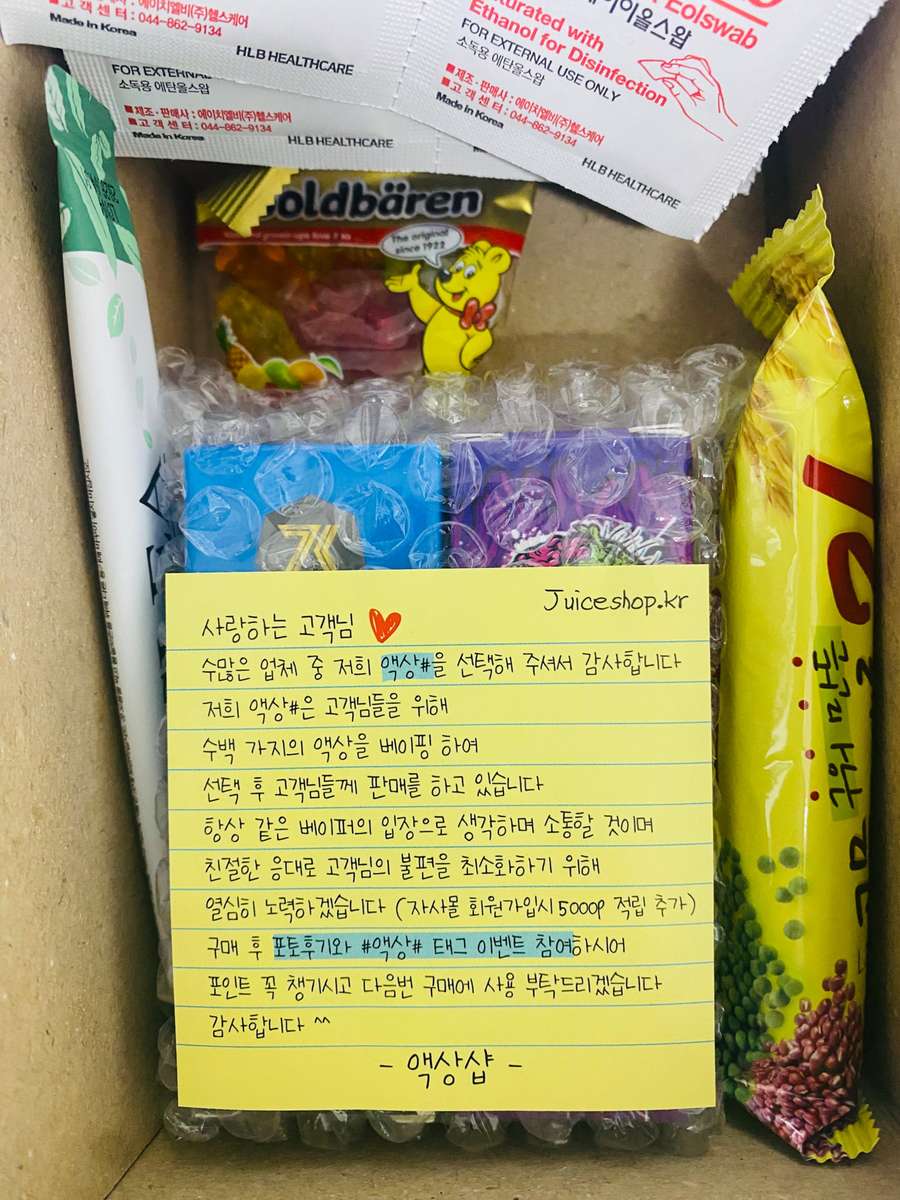 제조·판매사 : 에이치엘비(주)헬스케어
고 객 센 터 : 044-862-9134
Made in Korea
HLB HEALTHCARE
FOR EXTERNAL
소독용 에탄올스왑
제조·판매사 : 에이치엘비(주)헬스케어
고 객 센 터 : 044-862-9134
Made in Korea
HLB HEALTHCARE
Eolswab
이올스왑
Ethanol for Disinfection
FOR EXTERNAL USE ONLY
소독용 에탄올스왑
제조·판매사 : 에이치엘비(주)헬스케어
고 객 센 터 : 044-862-9134
Made in Korea
HLB HEALTHCARE
oldbären
The original
since 1922
Juiceshop.kr
사랑하는 고객님
수많은 업체 중 저희 액상#을 선택해 주셔서 감사합니다
저희 액상#은 고객님들을 위해
수백 가지의 액상을 베이핑 하여
선택 후 고객님들께 판매를 하고 있습니다
항상 같은 베이퍼의 입장으로 생각하며 소통할 것이며
친절한 응대로 고객님의 불편을 최소화하기 위해
열심히 노력하겠습니다 (자사몰 회원가입시 5000P 적립 추가)
구매 후 포토후기와 #액상# 태그 이벤트 참여하시어
포인트 꼭 챙기시고 다음번 구매에 사용 부탁드리겠습니다
감사합니다 ^^
- 액상샵 -